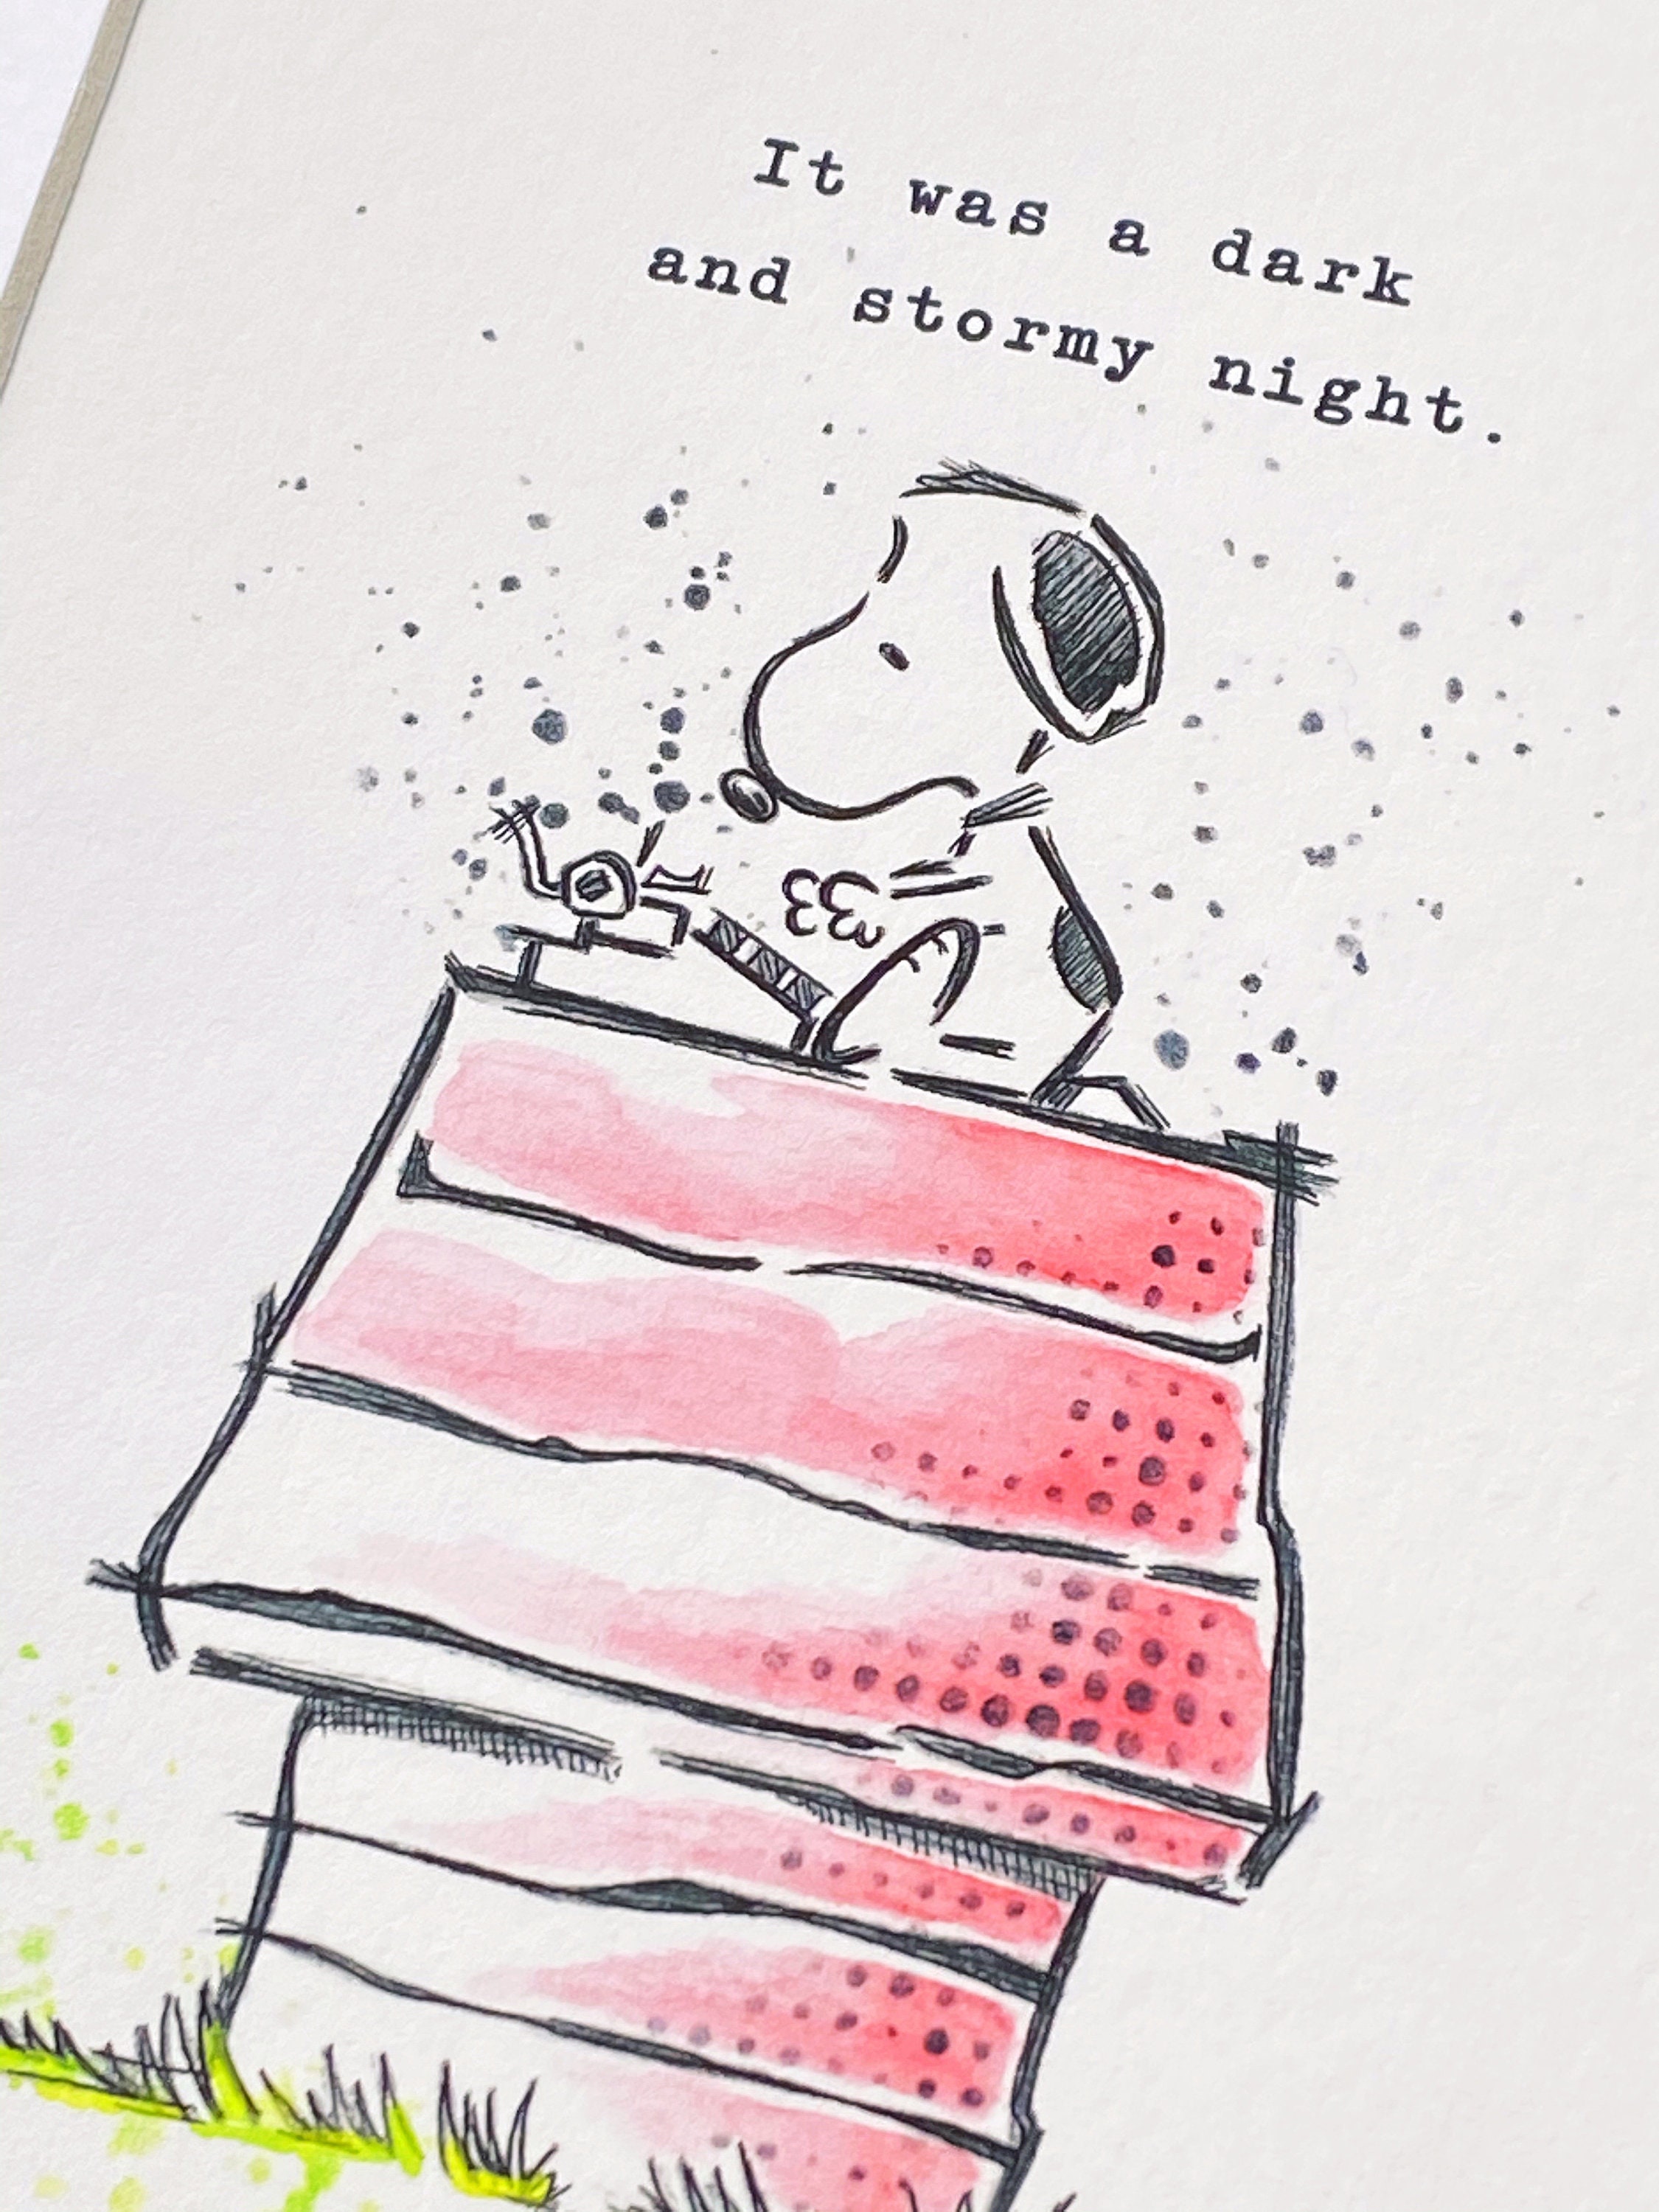 It was a dark
and stormy night.